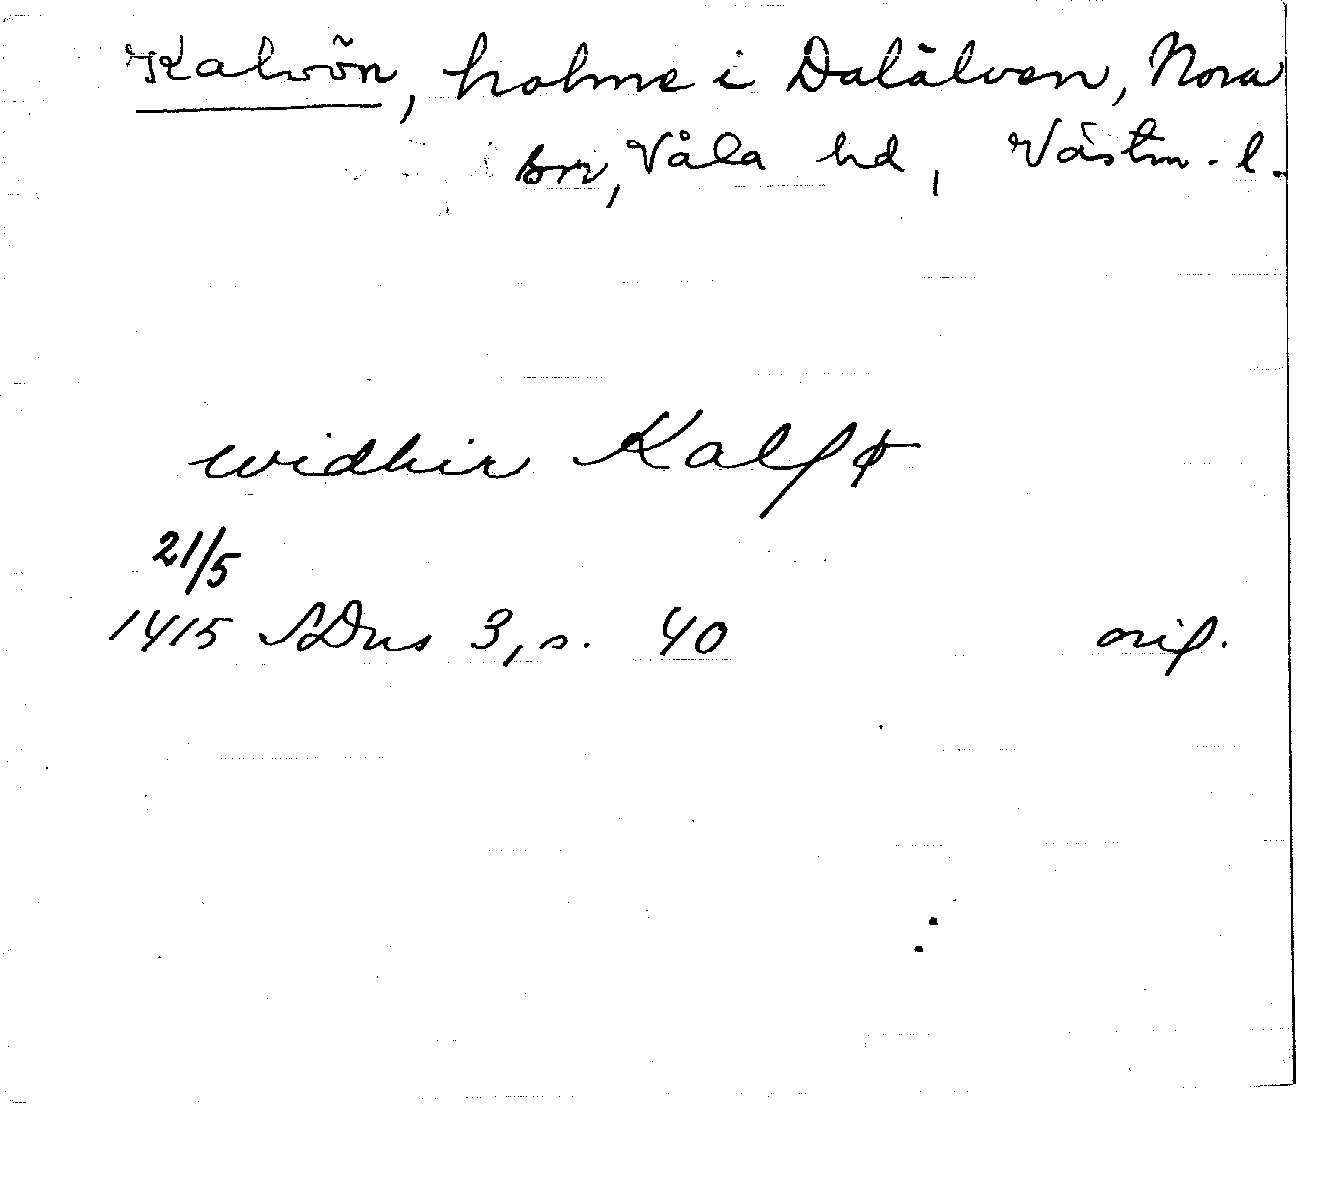 Kalvön, holme i Dalälven, Nora
sn, Våla hd, Västm. l.
widhir Kalfø
21/5
1415 SDns 3, s. 40 orig.